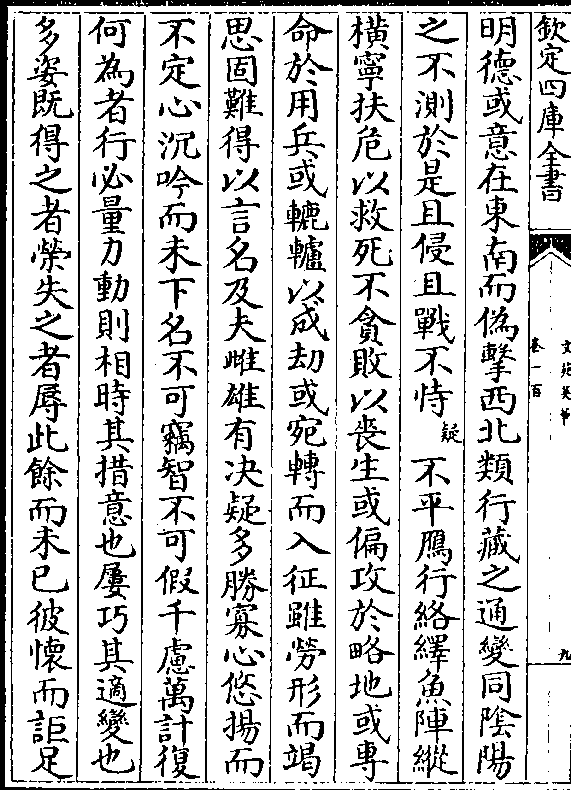 欽定四庫全書
文苑英華
卷一百
九
明德或意在東南而偽擊西北類行藏之通變同隂陽
之不測於是且侵且戰不恃疑不平鴈行絡繹魚陣縱
橫寧扶危以救死不貪敗以喪生或偏攻於略地或專
命於用兵或轆轤以成劫或宛轉而入征雖勞形而竭
思固難得以言名及夫雌雄有决疑多勝寡心悠揚而
不定心沉吟而未下名不可竊智不可假千慮萬計復
何為者行必量力動則相時其措意也屢巧其適變也
多姿既得之者榮失之者辱此餘而未已彼懷而詎足